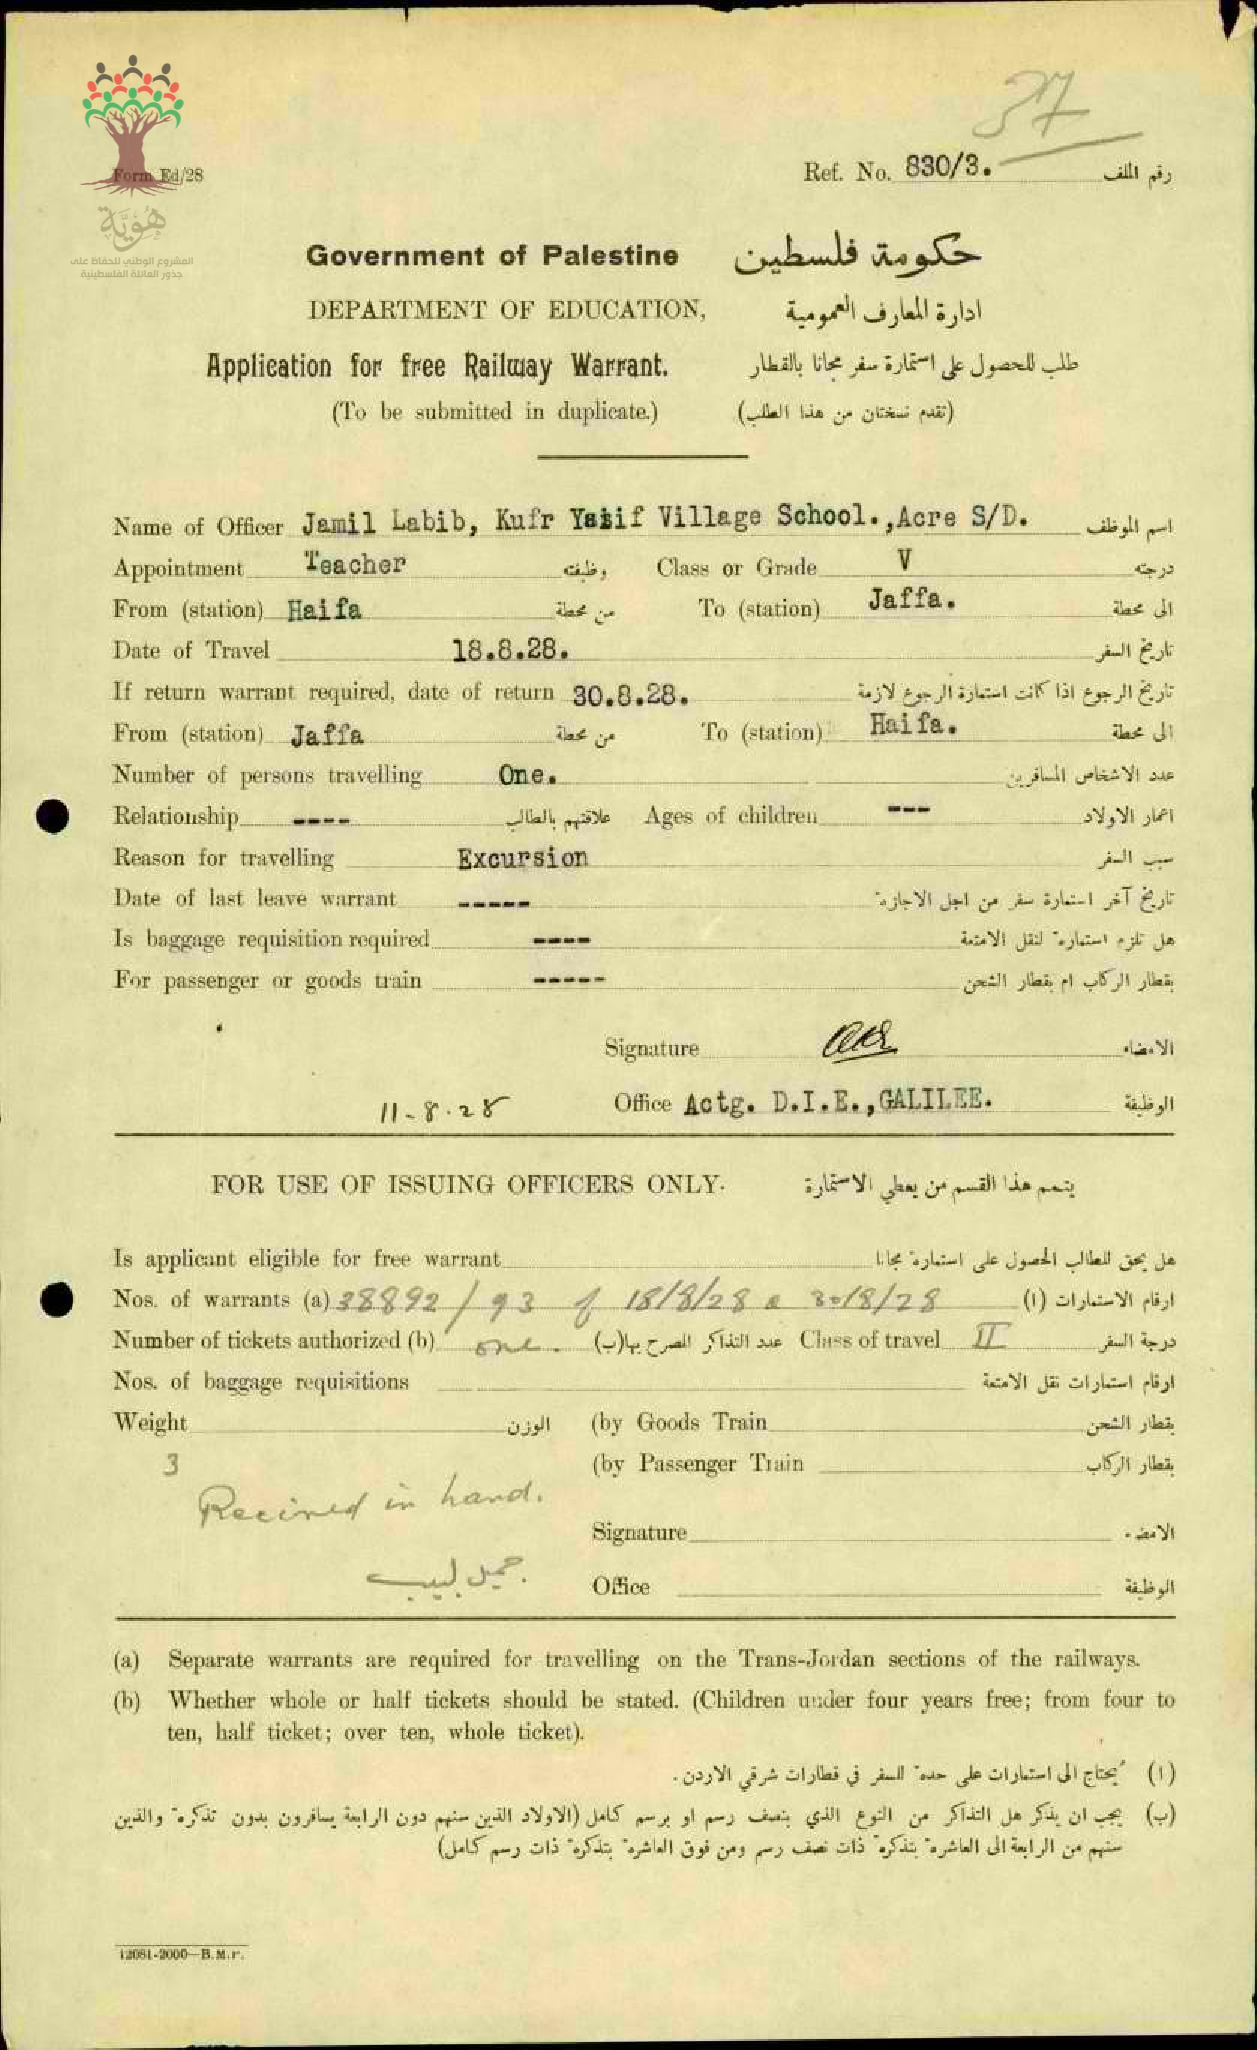 37
Form Ed/28
Ref. No. 830/3. رقم الملف
هُوِيَّة
المشروع الوطني للحفاظ على
جذور العائلة الفلسطينية
Government of Palestine حكومة فلسطين
DEPARTMENT OF EDUCATION, ادارة المعارف العمومية
Application for free Railway Warrant. طلب للحصول على استمارة سفر مجانا بالقطار
(To be submitted in duplicate.) (تقدم نسختان من هذا الطلب)
Name of Officer Jamil Labib, Kufr Yasif Village School.,Acre S/D. اسم الموظف
Appointment Teacher وظيفته Class or Grade V درجته
From (station) Haifa من محطة To (station) Jaffa. الى محطة
Date of Travel 18.8.28. تاريخ السفر
If return warrant required, date of return 30.8.28. تاريخ الرجوع اذا كانت استمارة الرجوع لازمة
From (station) Jaffa من محطة To (station) Haifa. الى محطة
Number of persons travelling One. عدد الاشخاص المسافرين
Relationship ---- علاقتهم بالطالب Ages of children --- اعمار الاولاد
Reason for travelling Excursion سبب السفر
Date of last leave warrant ----- تاريخ آخر استمارة سفر من اجل الاجازة
Is baggage requisition required ---- هل تلزم استمارة لنقل الامتعة
For passenger or goods train ----- بقطار الركاب ام بقطار الشحن
Signature الامضاء
11-8-28 Office Actg. D.I.E.,GALILEE. الوظيفة
FOR USE OF ISSUING OFFICERS ONLY. يتمم هذا القسم من يعطي الاستمارة
Is applicant eligible for free warrant هل يحق للطالب الحصول على استمارة مجانا
Nos. of warrants (a) 38892/93 of 18/8/28 & 30/8/28 ارقام الاستمارات (١)
Number of tickets authorized (b) one. عدد التذاكر المصرح بها(ب) Class of travel II درجة السفر
Nos. of baggage requisitions ارقام استمارات نقل الامتعة
Weight الوزن (by Goods Train بقطار الشحن
3 (by Passenger Train بقطار الركاب
Received in hand.
Signature الامضاء
جميل لبيب Office الوظيفة
(a) Separate warrants are required for travelling on the Trans-Jordan sections of the railways.
(b) Whether whole or half tickets should be stated. (Children under four years free; from four to
ten, half ticket; over ten, whole ticket).
(١) يحتاج الى استمارات على حدة للسفر في قطارات شرقي الاردن.
(ب) يجب ان يذكر هل التذاكر من النوع الذي بنصف رسم او برسم كامل (الاولاد الذين سنهم دون الرابعة يسافرون بدون تذكرة والذين
سنهم من الرابعة الى العاشرة بتذكرة ذات نصف رسم ومن فوق العاشرة بتذكرة ذات رسم كامل)
12081-2000-B.M.P.